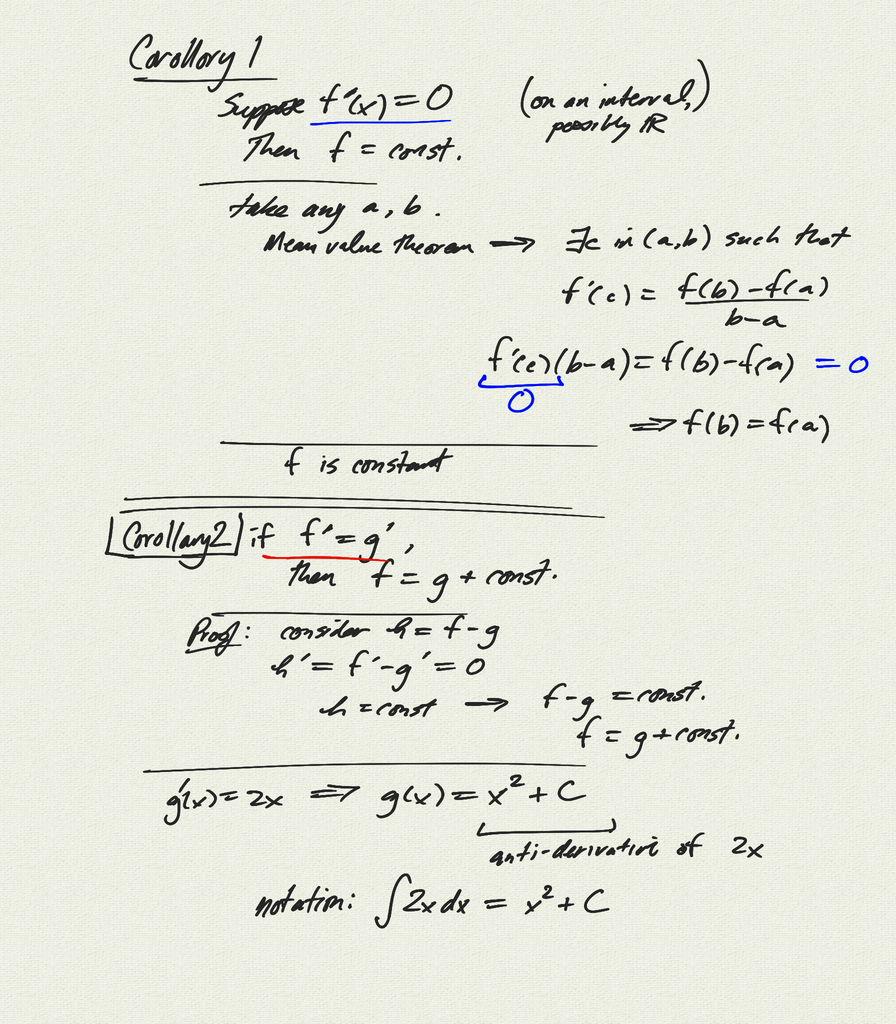 Corollory 1
Suppose f'(x) = 0 (on an interval, possibly ℝ)
Then f = const.
take any a, b.
Mean value theorem → ∃c in (a,b) such that
f'(c) = (f(b) - f(a))/(b-a)
f'(c)(b-a) = f(b) - f(a) = 0
0
⟹ f(b) = f(a)
f is constant
Corollary 2 if f' = g',
then f = g + const.
Proof: consider h = f - g
h' = f' - g' = 0
h = const → f - g = const.
f = g + const.
g'(x) = 2x ⟹ g(x) = x² + C
anti-derivative of 2x
notation: ∫2x dx = x² + C